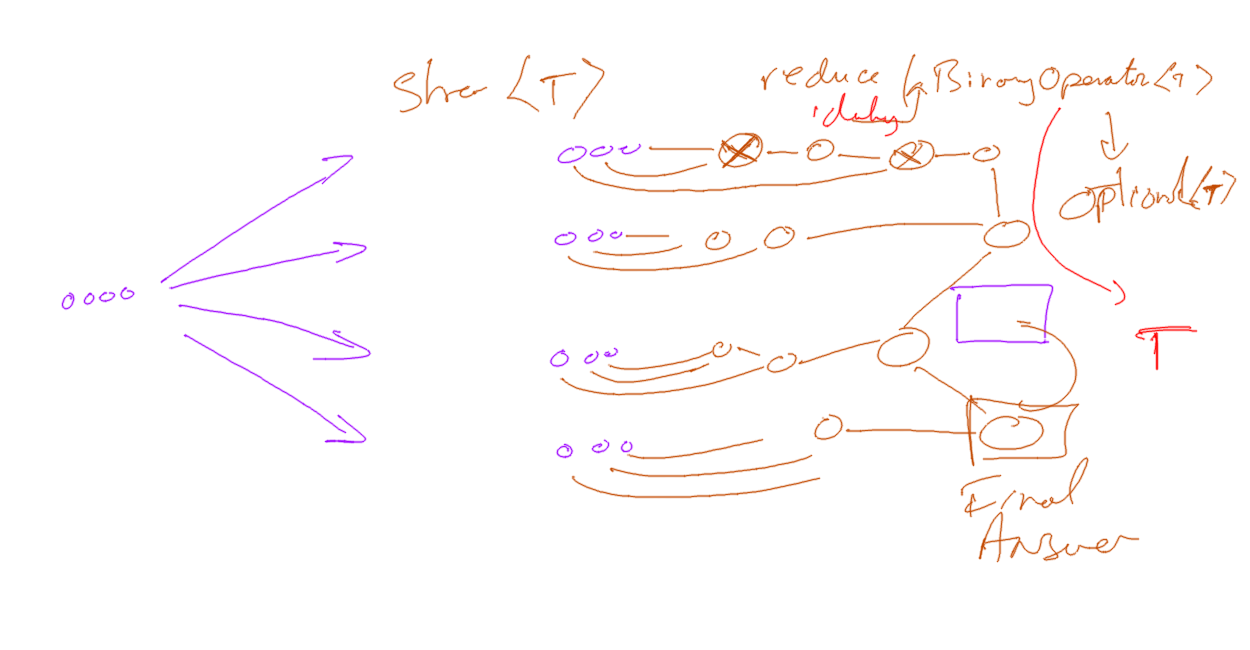 Stre <T>
reduce (BinaryOperator<T>
Optional<T>
T
Final
Answer